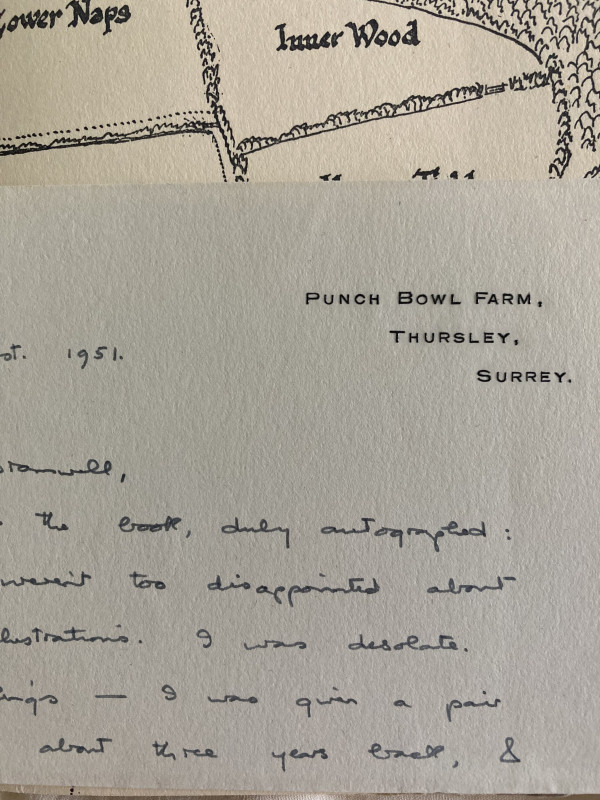 Lower Naps
Inner Wood
PUNCH BOWL FARM,
THURSLEY,
SURREY.
st. 1951.
the book, duly autographed :
weren't too disappointed about
llustrations. I was desolate.
ings — I was given a pair
about three years back, &